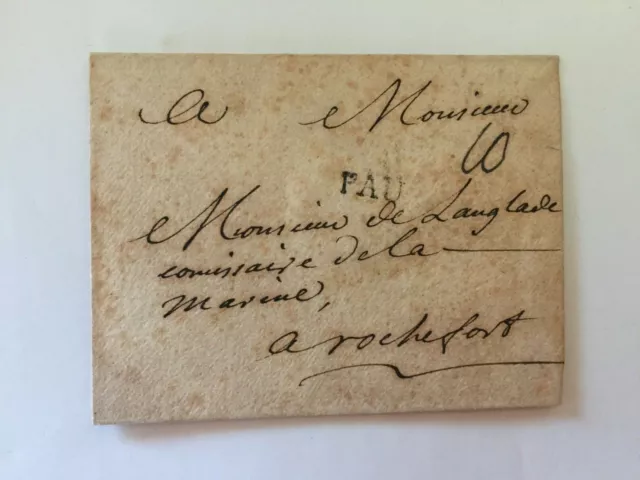 A Monsieur
10
PAU
Monsieur de Langlade
comissaire de la
marine,
a rochefort